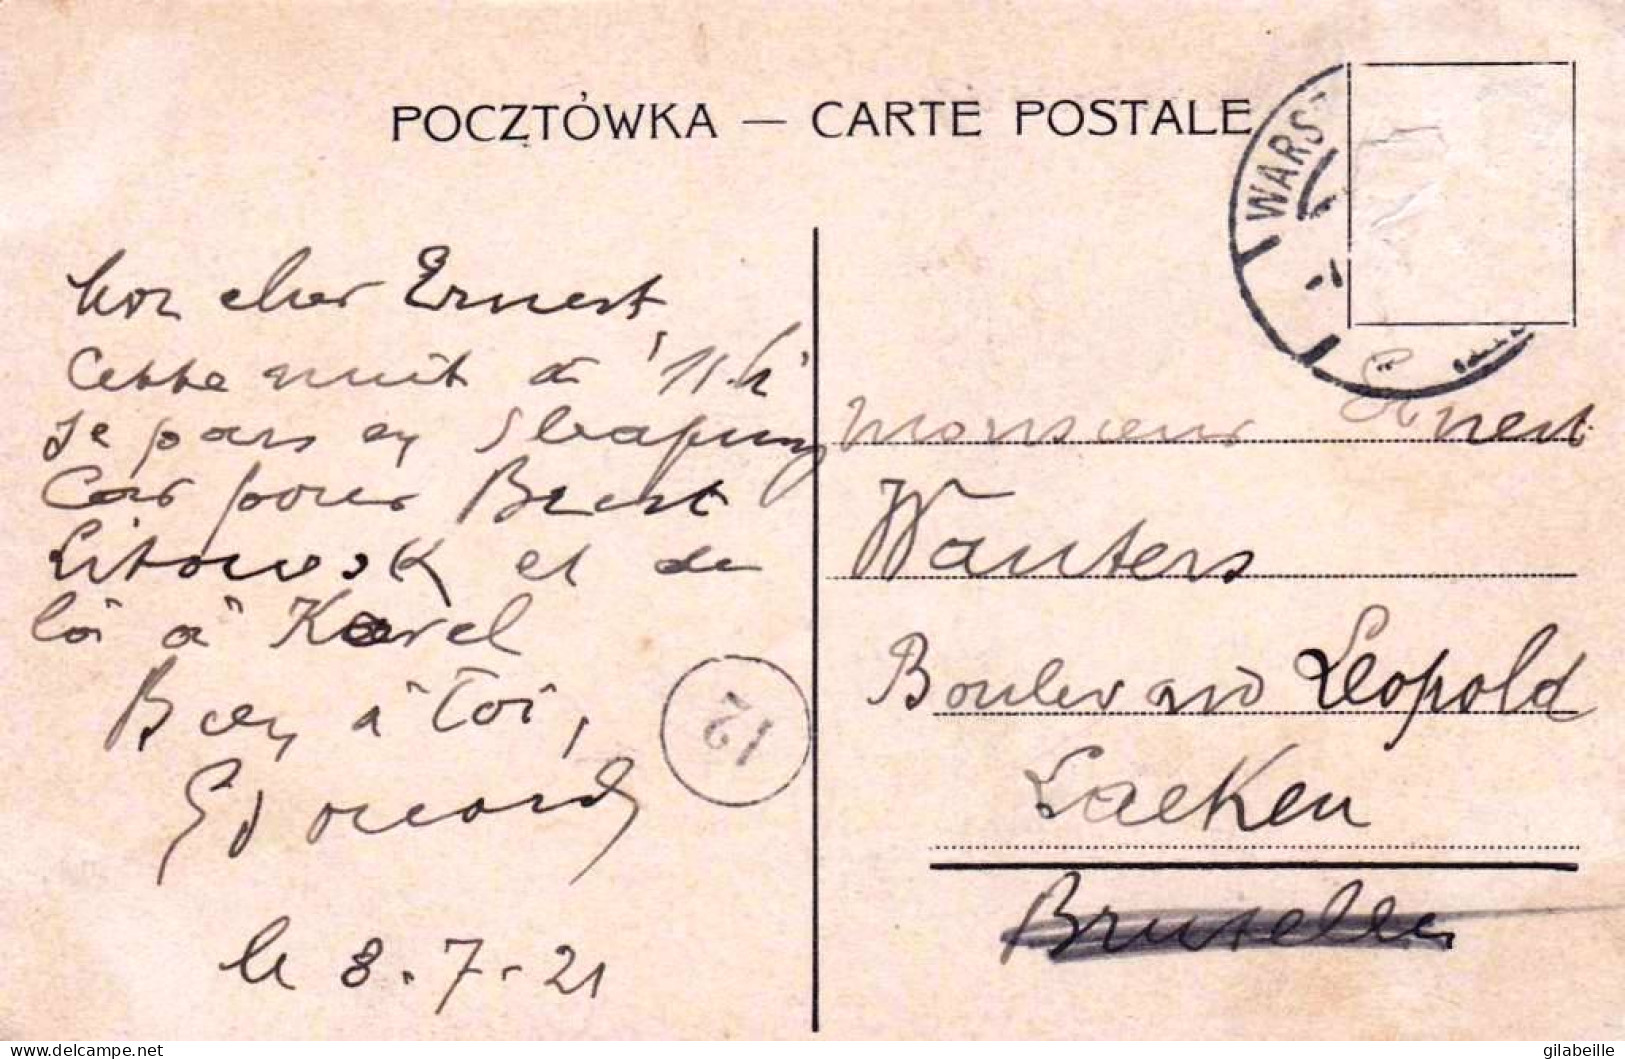 POCZTÓWKA — CARTE POSTALE
WARS
Mon cher Ernest,
Cette nuit à 11.h
je pars en Sleaping
Car pour Brest
Litowsk et de
là à Karel
Bien à toi,
Edouard
le 8-7-21
12
Monsieur Ernest
Wauters
Boulevard Leopold
Laeken
Bruxelles
gilabeille
delcampe.net